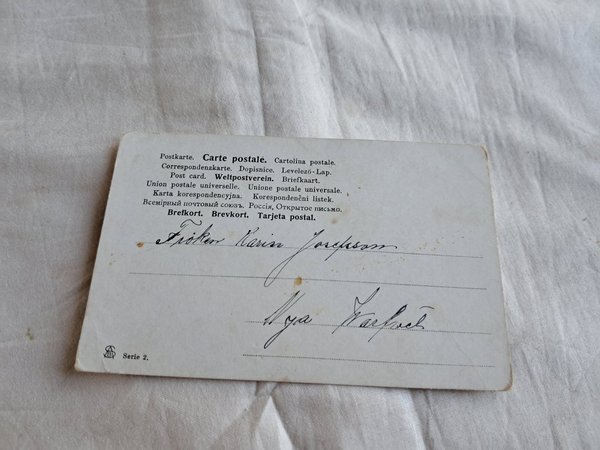 Postkarte. Carte postale. Cartolina postale.
Correspondenzkarte. Dopisnice. Levelező-Lap.
Post card. Weltpostverein. Briefkaart.
Union postale universelle. Unione postale universale.
Karta korespondencyjna. Korespondenční lístek.
Всемірный почтовый союзъ. Россія, Открытое письмо.
Brefkort. Brevkort. Tarjeta postal.
Fröken Karin Josefsson
Nya Warfvet
Serie 2.